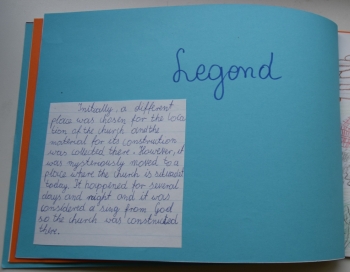 Legend
Initially a different
place was chosen for the loca
tion of the church and the
material for its construction
was collected there. However, it
was mysteriously moved to a
place where the church is situated
today. It happened for several
days and night and it was
considered a sing from God
so the church was constructed
there.